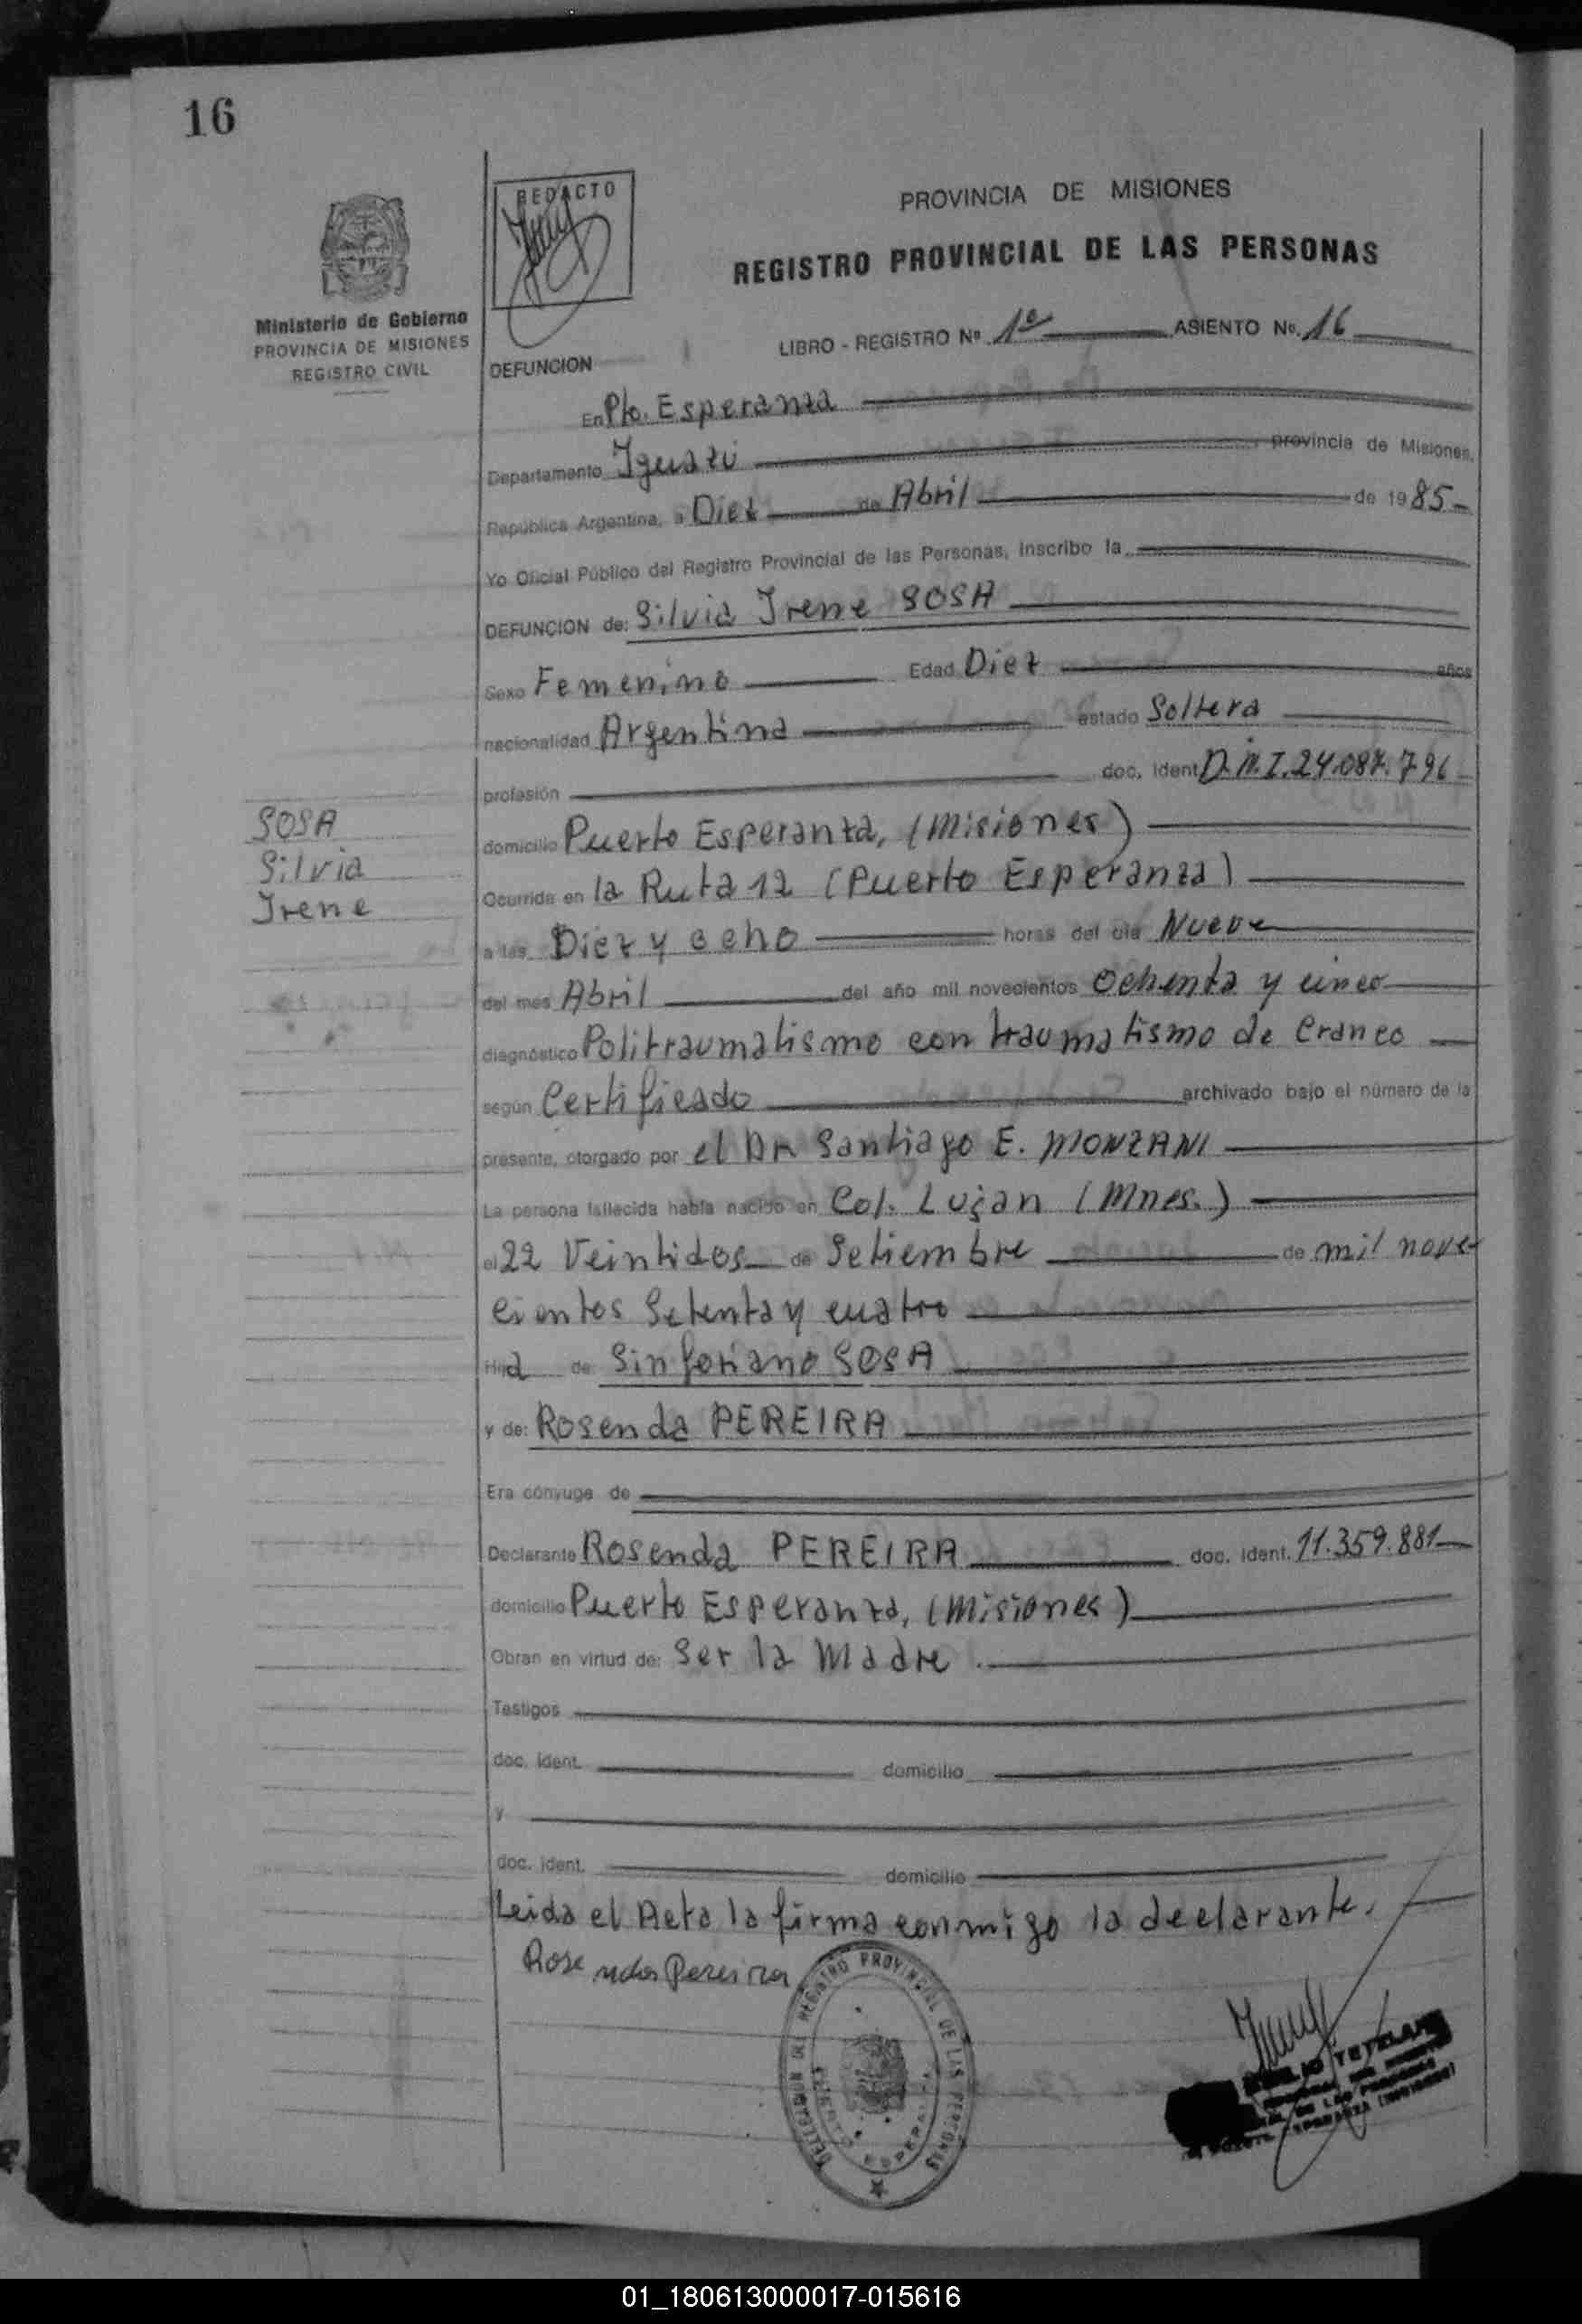 16
REDACTO
PROVINCIA DE MISIONES
REGISTRO PROVINCIAL DE LAS PERSONAS
Ministerio de Gobierno
PROVINCIA DE MISIONES
REGISTRO CIVIL
LIBRO - REGISTRO Nº 1º ASIENTO No. 16
DEFUNCION
En Pto. Esperanza
Departamento Iguazú provincia de Misiones,
República Argentina, a Diez de Abril de 1985-
Yo Oficial Público del Registro Provincial de las Personas, inscribo la
DEFUNCION de: Silvia Irene SOSA
Sexo Femenino Edad Diez años
nacionalidad Argentina estado Soltera
profesión doc. ident D.N.I. 24.087.796
SOSA
Silvia
Irene
domicilio Puerto Esperanza, (Misiones)
Ocurrida en la Ruta 12 (Puerto Esperanza)
a las Diez y ocho horas del día Nueve
del mes Abril del año mil novecientos Ochenta y cinco
diagnóstico Politraumatismo con traumatismo de Craneo
según Certificado archivado bajo el número de la
presente, otorgado por el Dr Santiago E. MONZANI
La persona fallecida había nacido en Col. Lujan (Mnes.)
el 22 Veintidos de Setiembre de mil nove
cientos Setenta y cuatro
Hija de: Sinforiano SOSA
y de: Rosenda PEREIRA
Era cónyuge de
Declarante Rosenda PEREIRA doc. ident. 11.359.881
domicilio Puerto Esperanza, (Misiones)
Obran en virtud de: Ser la Madre.
Testigos
doc. ident. domicilio
y
doc. ident. domicilio
Leida el Acta la firma conmigo la declarante.
Rosenda Pereira
REGISTRO PROVINCIAL DE LAS PERSONAS
01_180613000017-015616